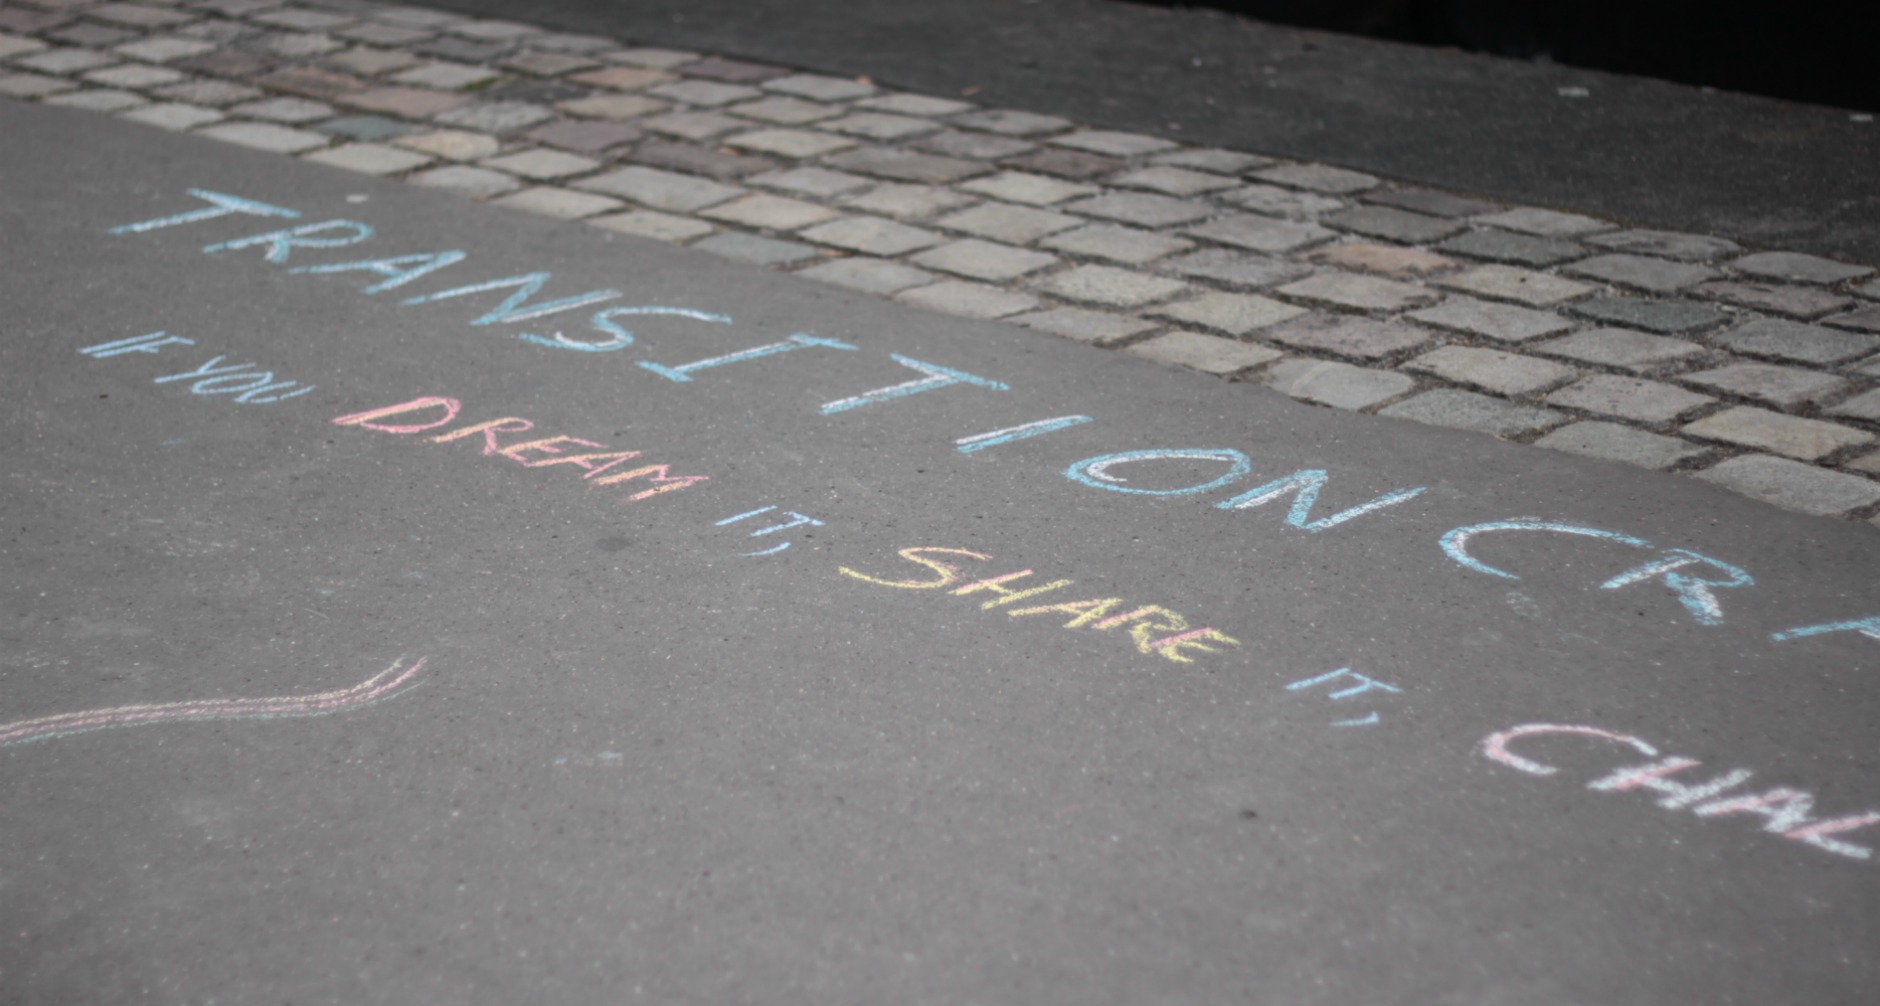 TRANSITION CR
IF YOU DREAM IT, SHARE IT, CHAL